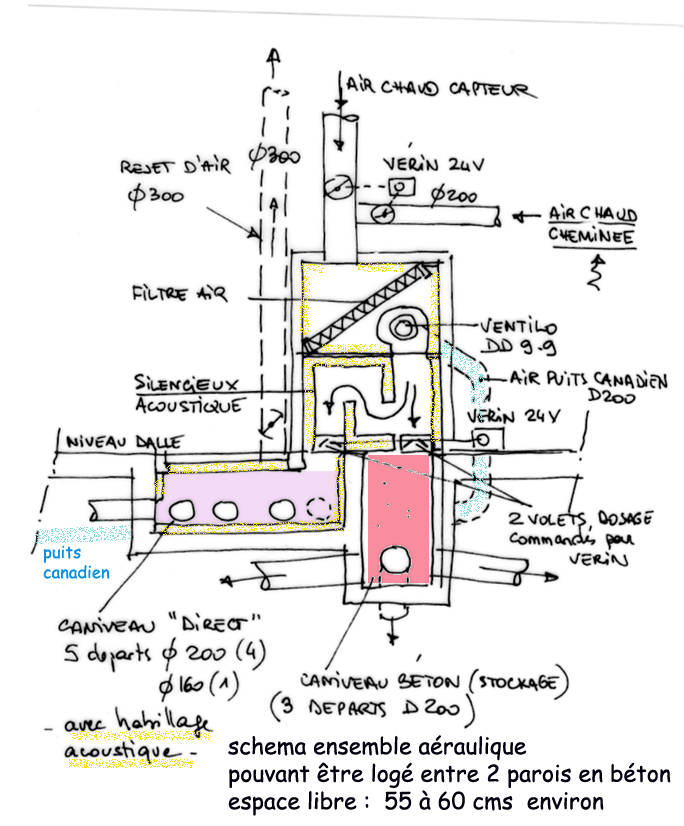 AIR CHAUD CAPTEUR
REJET D'AIR Ø300
Ø300
VÉRIN 24V
Ø200
AIR CHAUD
CHEMINEE
FILTRE AIR
VENTILO
DD 9.9
SILENCIEUX
ACOUSTIQUE
AIR PUITS CANADIEN
D200
VERIN 24V
NIVEAU DALLE
2 VOLETS, DOSAGE
commandés par
VERIN
puits
canadien
CANIVEAU "DIRECT"
5 departs Ø 200 (4)
Ø160 (1)
- avec habillage
acoustique -
CANIVEAU BÉTON (STOCKAGE)
(3 DEPARTS D200)
schema ensemble aéraulique
pouvant être logé entre 2 parois en béton
espace libre : 55 à 60 cms environ